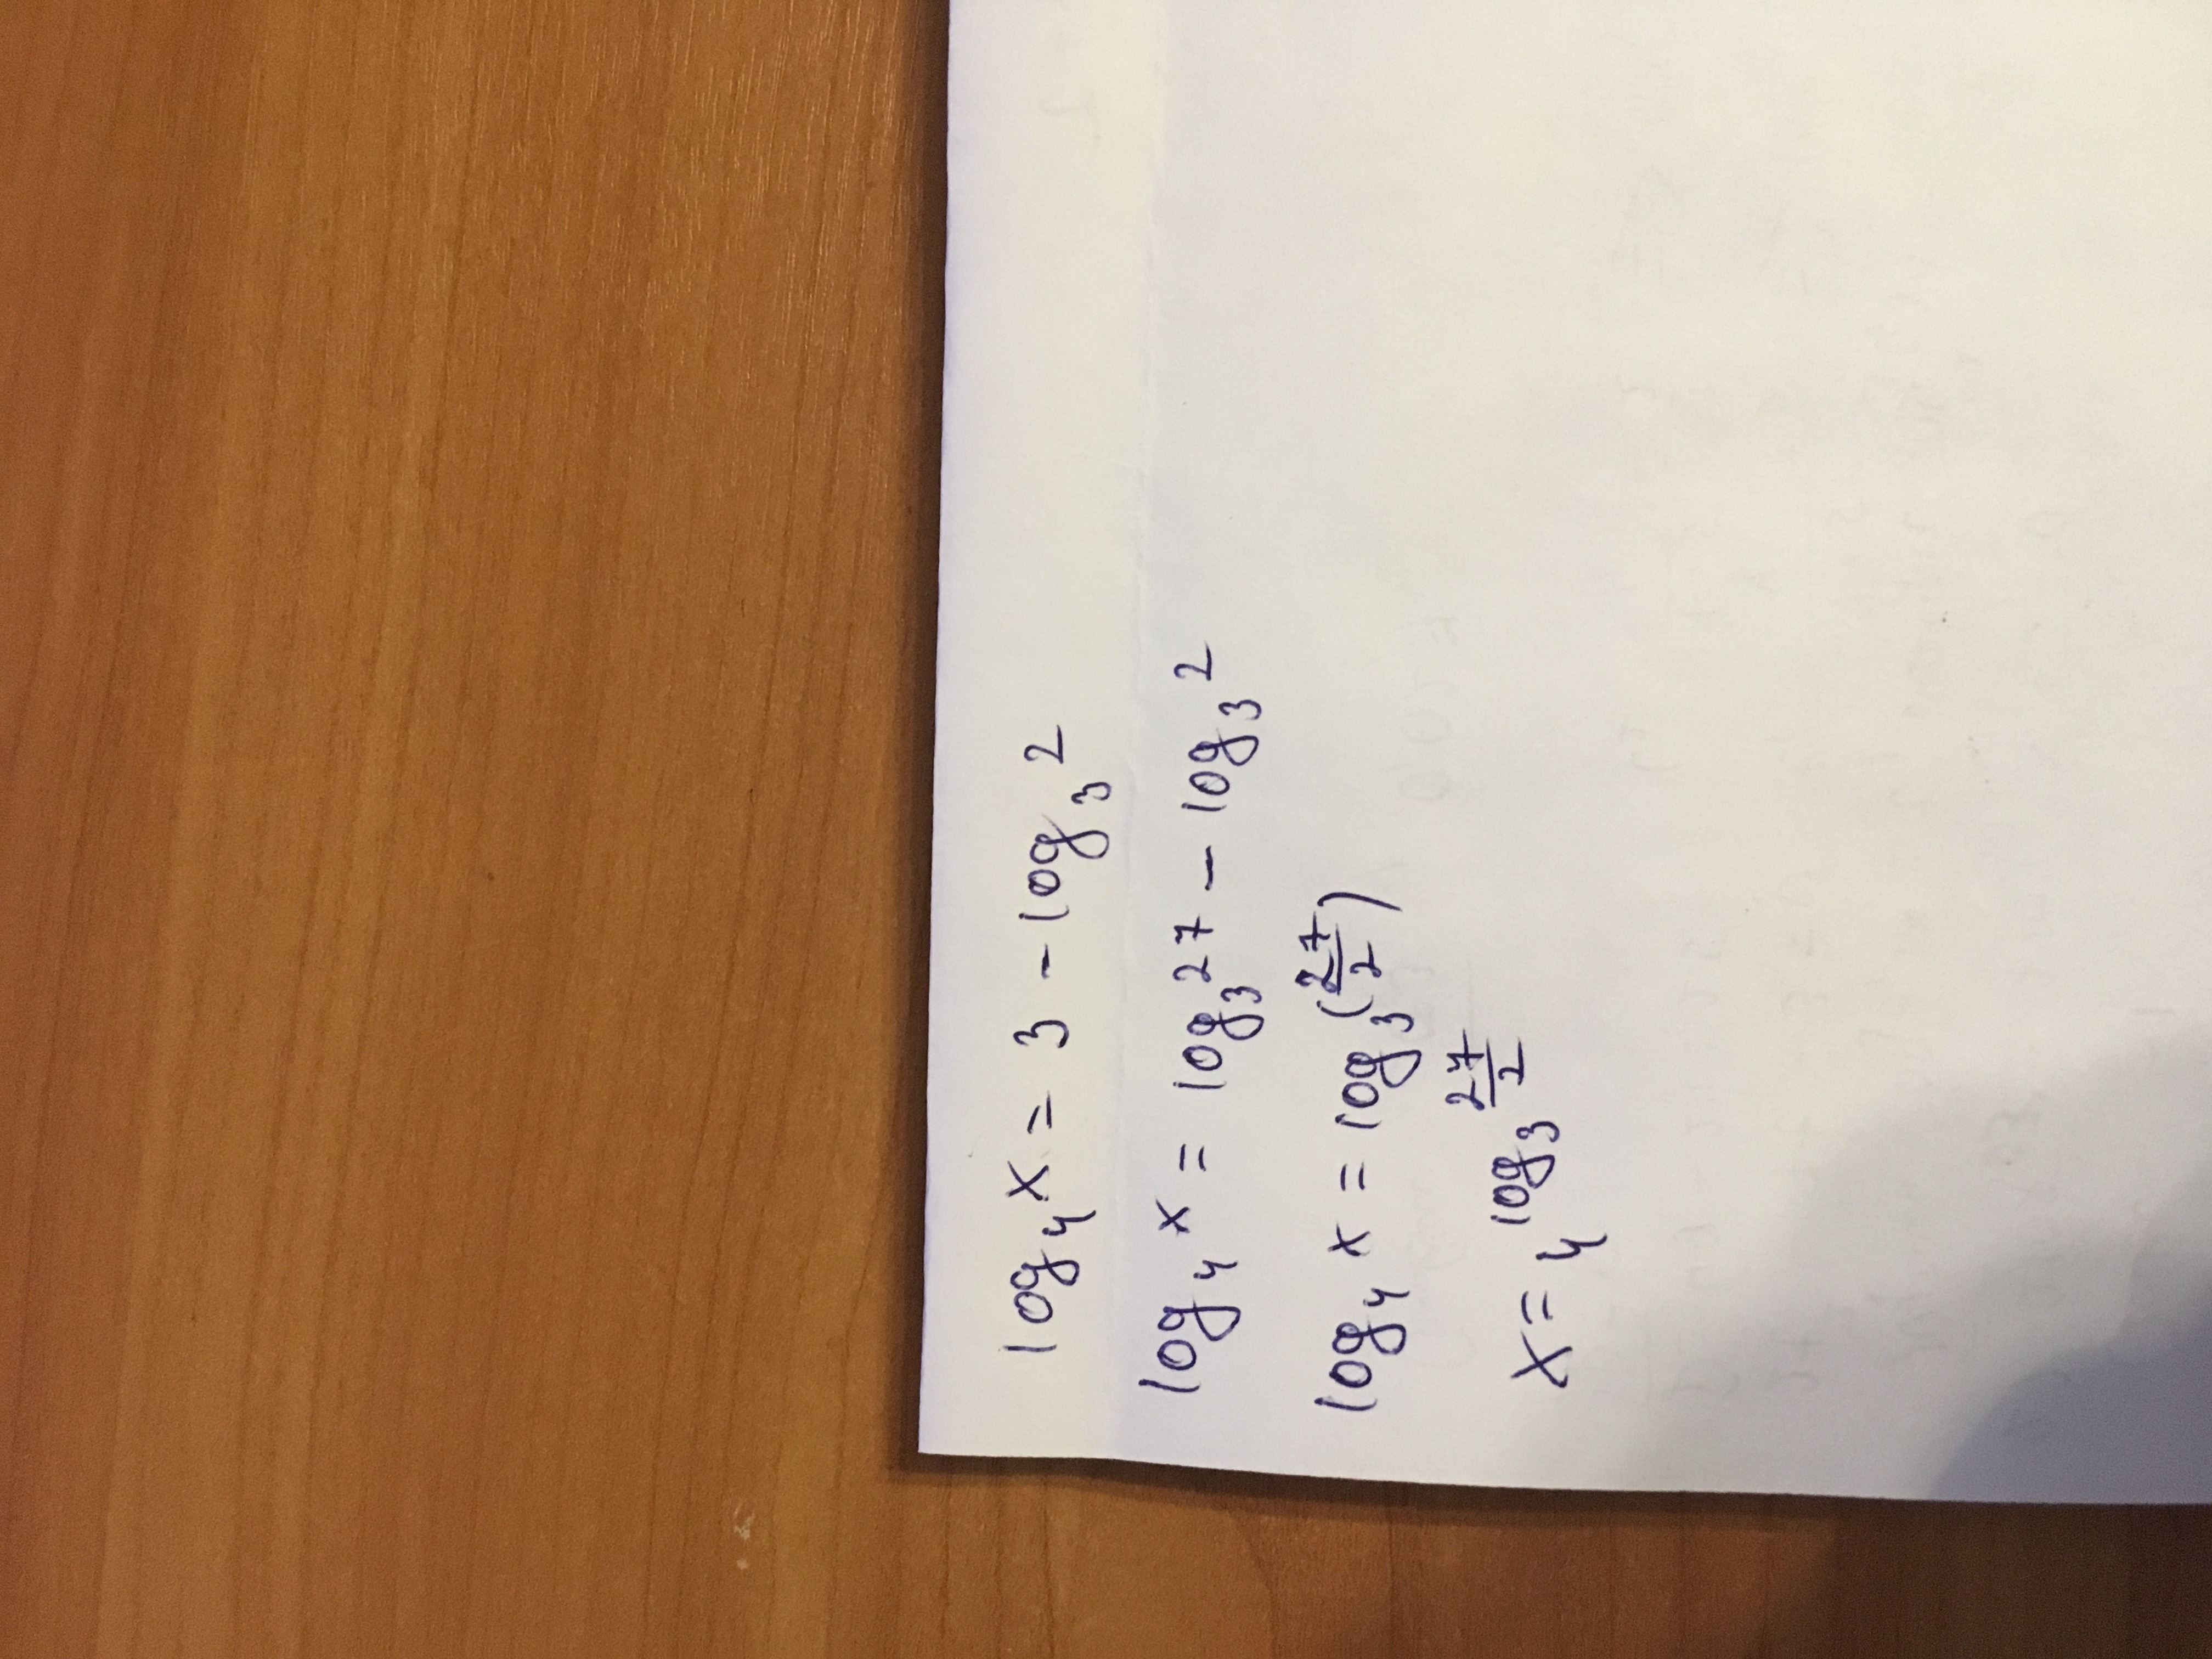 log₄x = 3 - log₃2
log₄x = log₃27 - log₃2
log₄x = log₃(27/2)
x = 4^log₃ 27/2